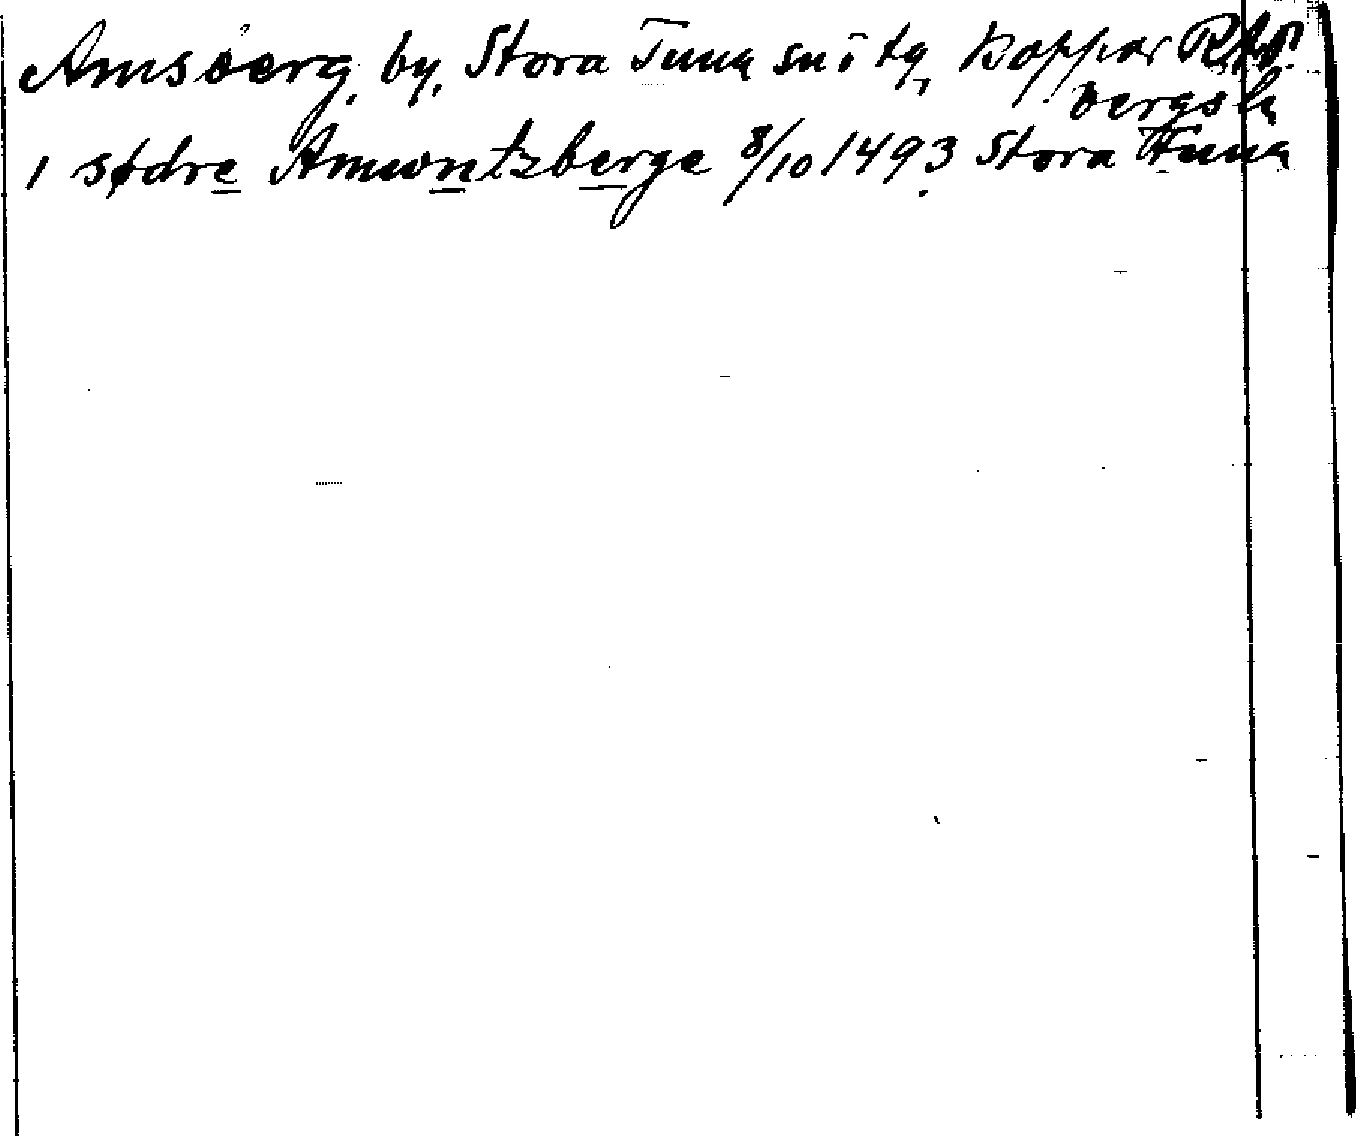 Amsberg, by, Stora Tuna sn i tg, Koppar RAp.
bergs l.
i sødre Amwntzberge 8/10 1493 Stora Tuna